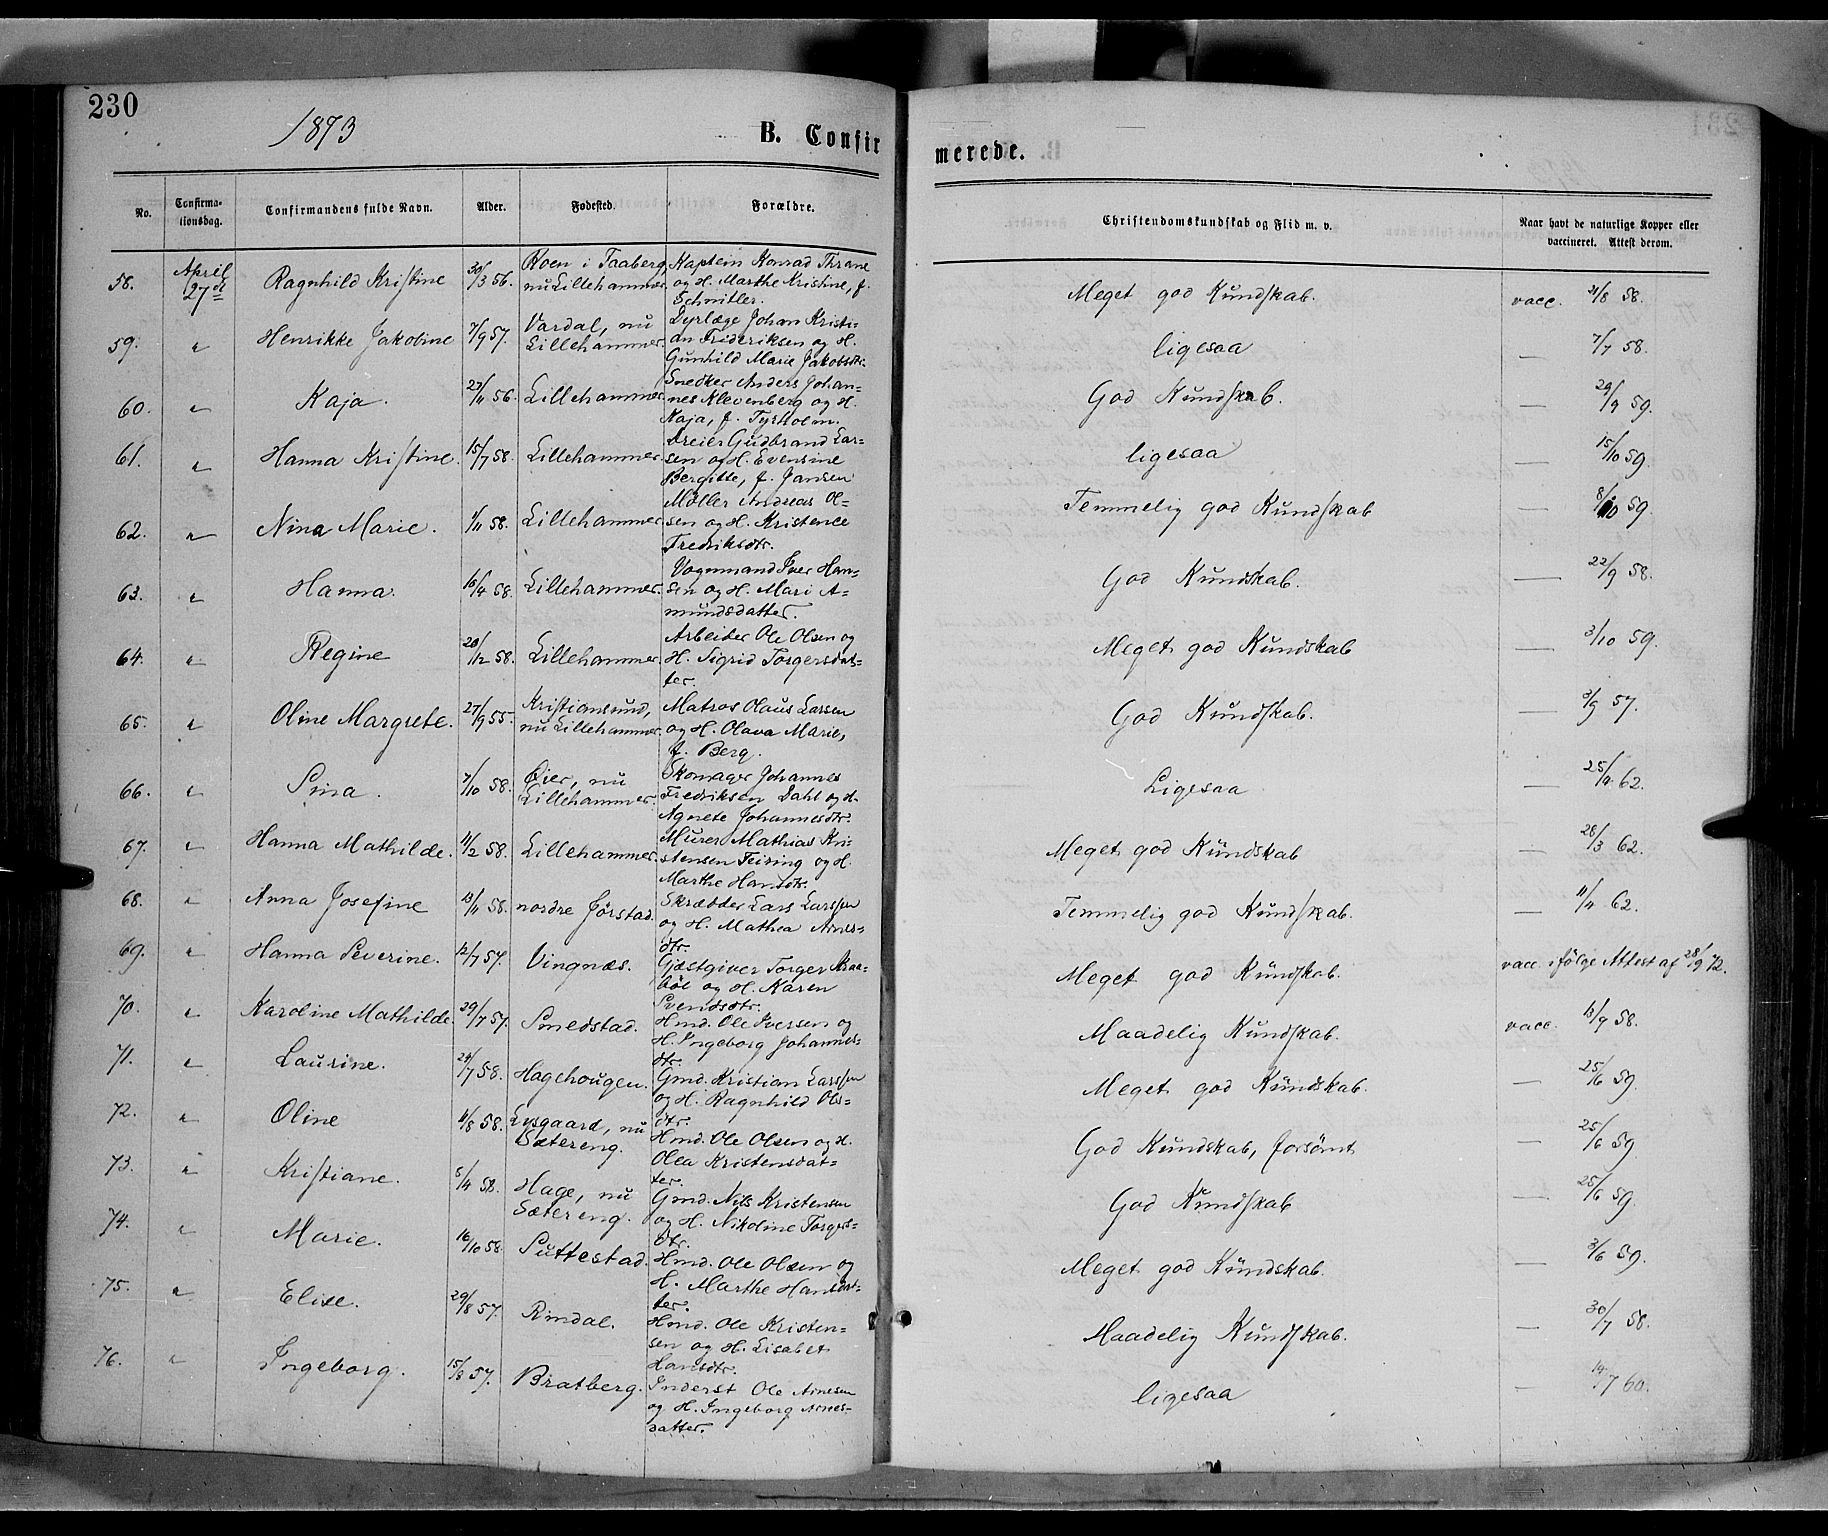 230
1873
B. Confirmerede.
No. Confirmationsdag. Confirmandens fulde Navn. Alder. Fødested. Forældre. Christendomskundskab og Flid m. v. Naar havt de naturlige Kopper eller vaccineret. Attest derom.
58. April 27de Ragnhild Kristine 30/3 56. Roen i Faaberg, nu Lillehammer. Kaptein Konrad Thrane og H. Marthe Kristine, f. Schnitler. Meget god Kundskab. vacc. 21/8 58.
59. " Henrikke Jakobine 7/9 57. Vardal, nu Lillehammer. Dyrlæge Johan Kristian Frideriksen og H. Gunhild Marie Jakobsdtr. ligesaa — 7/7 58.
60. " Kaja. 27/11 56. Lillehammer Snedker Anders Johannes Klevenberg og H. Kaja, f. Tyrholm. God Kundskab. — 29/9 59.
61. " Hanna Kristine. 15/7 58. Lillehammer. Dreier Gudbrand Larsen og H. Evensine Bergitte, f. Jansen ligesaa — 15/10 59.
62. " Nina Marie. 1/11 58. Lillehammer Møller Andreas Olsen og H. Kristence Fredriksdtr. Temmelig god Kundskab — 8/10 59.
63. " Hanna 16/4 58. Lillehammer. Vognmand Iver Hansen og H. Mari Amundsdatter. God Kundskab. — 22/9 58.
64. " Regine 20/12 58. Lillehammer. Arbeider Ole Olsen og H. Sigrid Torgersdatter. Meget god Kundskab — 3/10 59.
65. " Oline Margrete. 27/9 55. Kristiansund, nu Lillehammer. Matros Olaus Larsen og H. Olava Marie, f. Berg. God Kundskab. — 3/9 57.
66. " Sina. 7/10 58. Øier, nu Lillehammer. Skomager Johannes Fredriksen Dahl og H. Agnete Johannesdtr. Ligesaa — 25/9 62.
67. " Hanna Mathilde. 11/2 58. Lillehammer. Murer Mathias Kristensen Feiring og H. Marthe Hansdtr. Meget god Kundskab — 28/3 62.
68. " Anna Josefine 13/11 58. nordre Jørstad. Skrædder Lars Larssen og H. Mathea Arnesdtr. Temmelig god Kundskab. — 11/11 62.
69. " Hanna Severine. 12/7 57. Vingnæs. Gjæstgiver Torger Kraabøl og H. Karen Svendsdtr. Meget god Kundskab. vacc. ifølge Attest af 28/9 72.
70. " Karoline Mathilde. 29/7 57. Smedstad. Hmd. Ole Iversen og H. Ingeborg Johannesdtr. Maadelig Kundskab. vacc. 13/9 58.
71. " Laurine. 24/7 58. Hagehougen. Gmd. Kristian Larssen og H. Ragnhild Olsdtr. Meget god Kundskab — 25/6 59.
72. " Oline 11/8 58. Lysgaard, nu Sætereng. Hmd. Ole Olsen og H. Olea Kristensdatter. God Kundskab, forsømt — 25/6 59
73. " Kristiane. 5/4 58. Hage, nu Sætereng. Gmd. Nils Kristensen og H. Nikoline Torgersdtr. God Kundskab — 25/6 59.
74. " Marie. 16/10 58. Suttestad. Hmd. Ole Olsen og H. Marthe Hansdatter. Meget god Kundskab. — 3/6 59.
75. " Elise. 29/8 57. Rindal. Hmd. Ole Kristensen og H. Lisabet Hansdtr. Maadelig Kundskab. — 30/7 58.
76. " Ingeborg. 15/8 57. Bratberg. Inderst Ole Arnesen og H. Ingeborg Arnesdatter. ligesaa — 14/7 60.